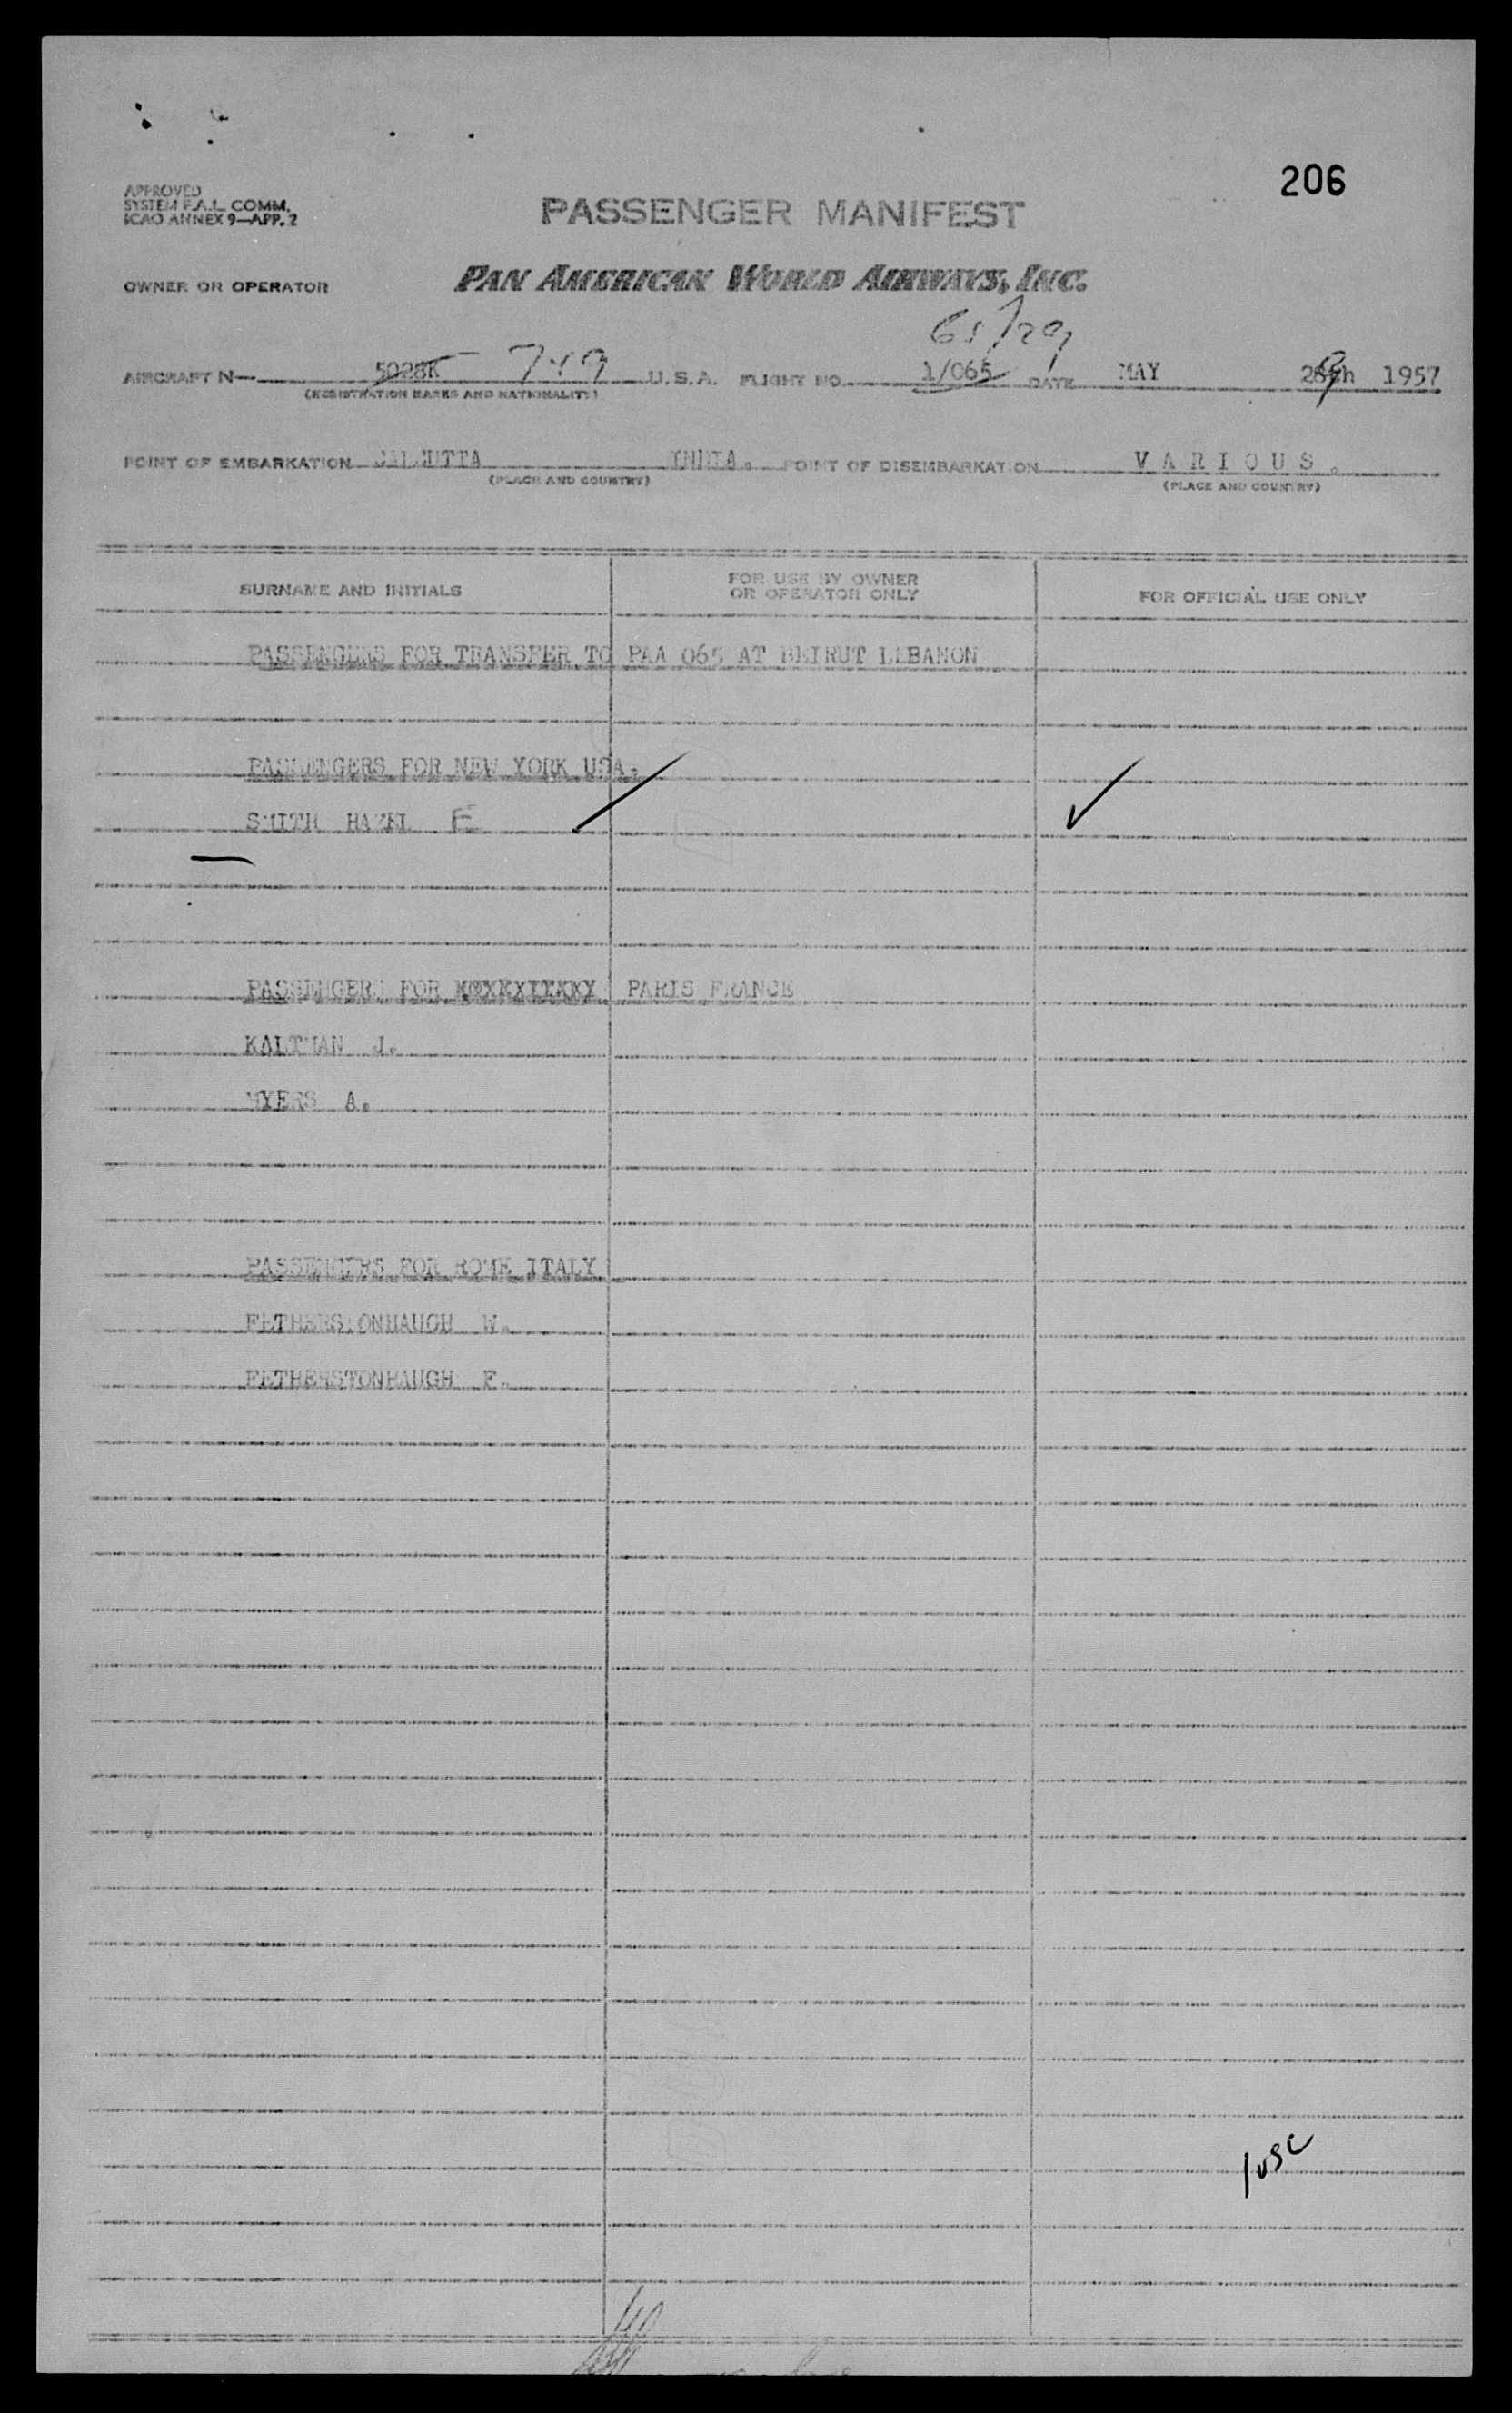 206
APPROVED
SYSTEM F.A.L. COMM.
ICAO ANNEX 9—APP. 2
PASSENGER MANIFEST
OWNER OR OPERATOR PAN AMERICAN WORLD AIRWAYS, INC.
65/29
AIRCRAFT N— 5028K 749 U.S.A. FLIGHT NO. 1/065 DATE MAY 1957
(REGISTRATION MARKS AND NATIONALITY)
POINT OF EMBARKATION CALCUTTA INDIA. POINT OF DISEMBARKATION VARIOUS.
(PLACE AND COUNTRY) (PLACE AND COUNTRY)
SURNAME AND INITIALS FOR USE BY OWNER OR OPERATOR ONLY FOR OFFICIAL USE ONLY
PASSENGERS FOR TRANSFER TO PAA 065 AT BEIRUT LEBANON
PASSENGERS FOR NEW YORK USA.
SMITH HAZEL E
PASSENGERS FOR PARIS FRANCE
KALTMAN J.
MYERS A.
PASSENGERS FOR ROME ITALY
FETHERSTONHAUGH W.
FETHERSTONHAUGH F.
1 USC